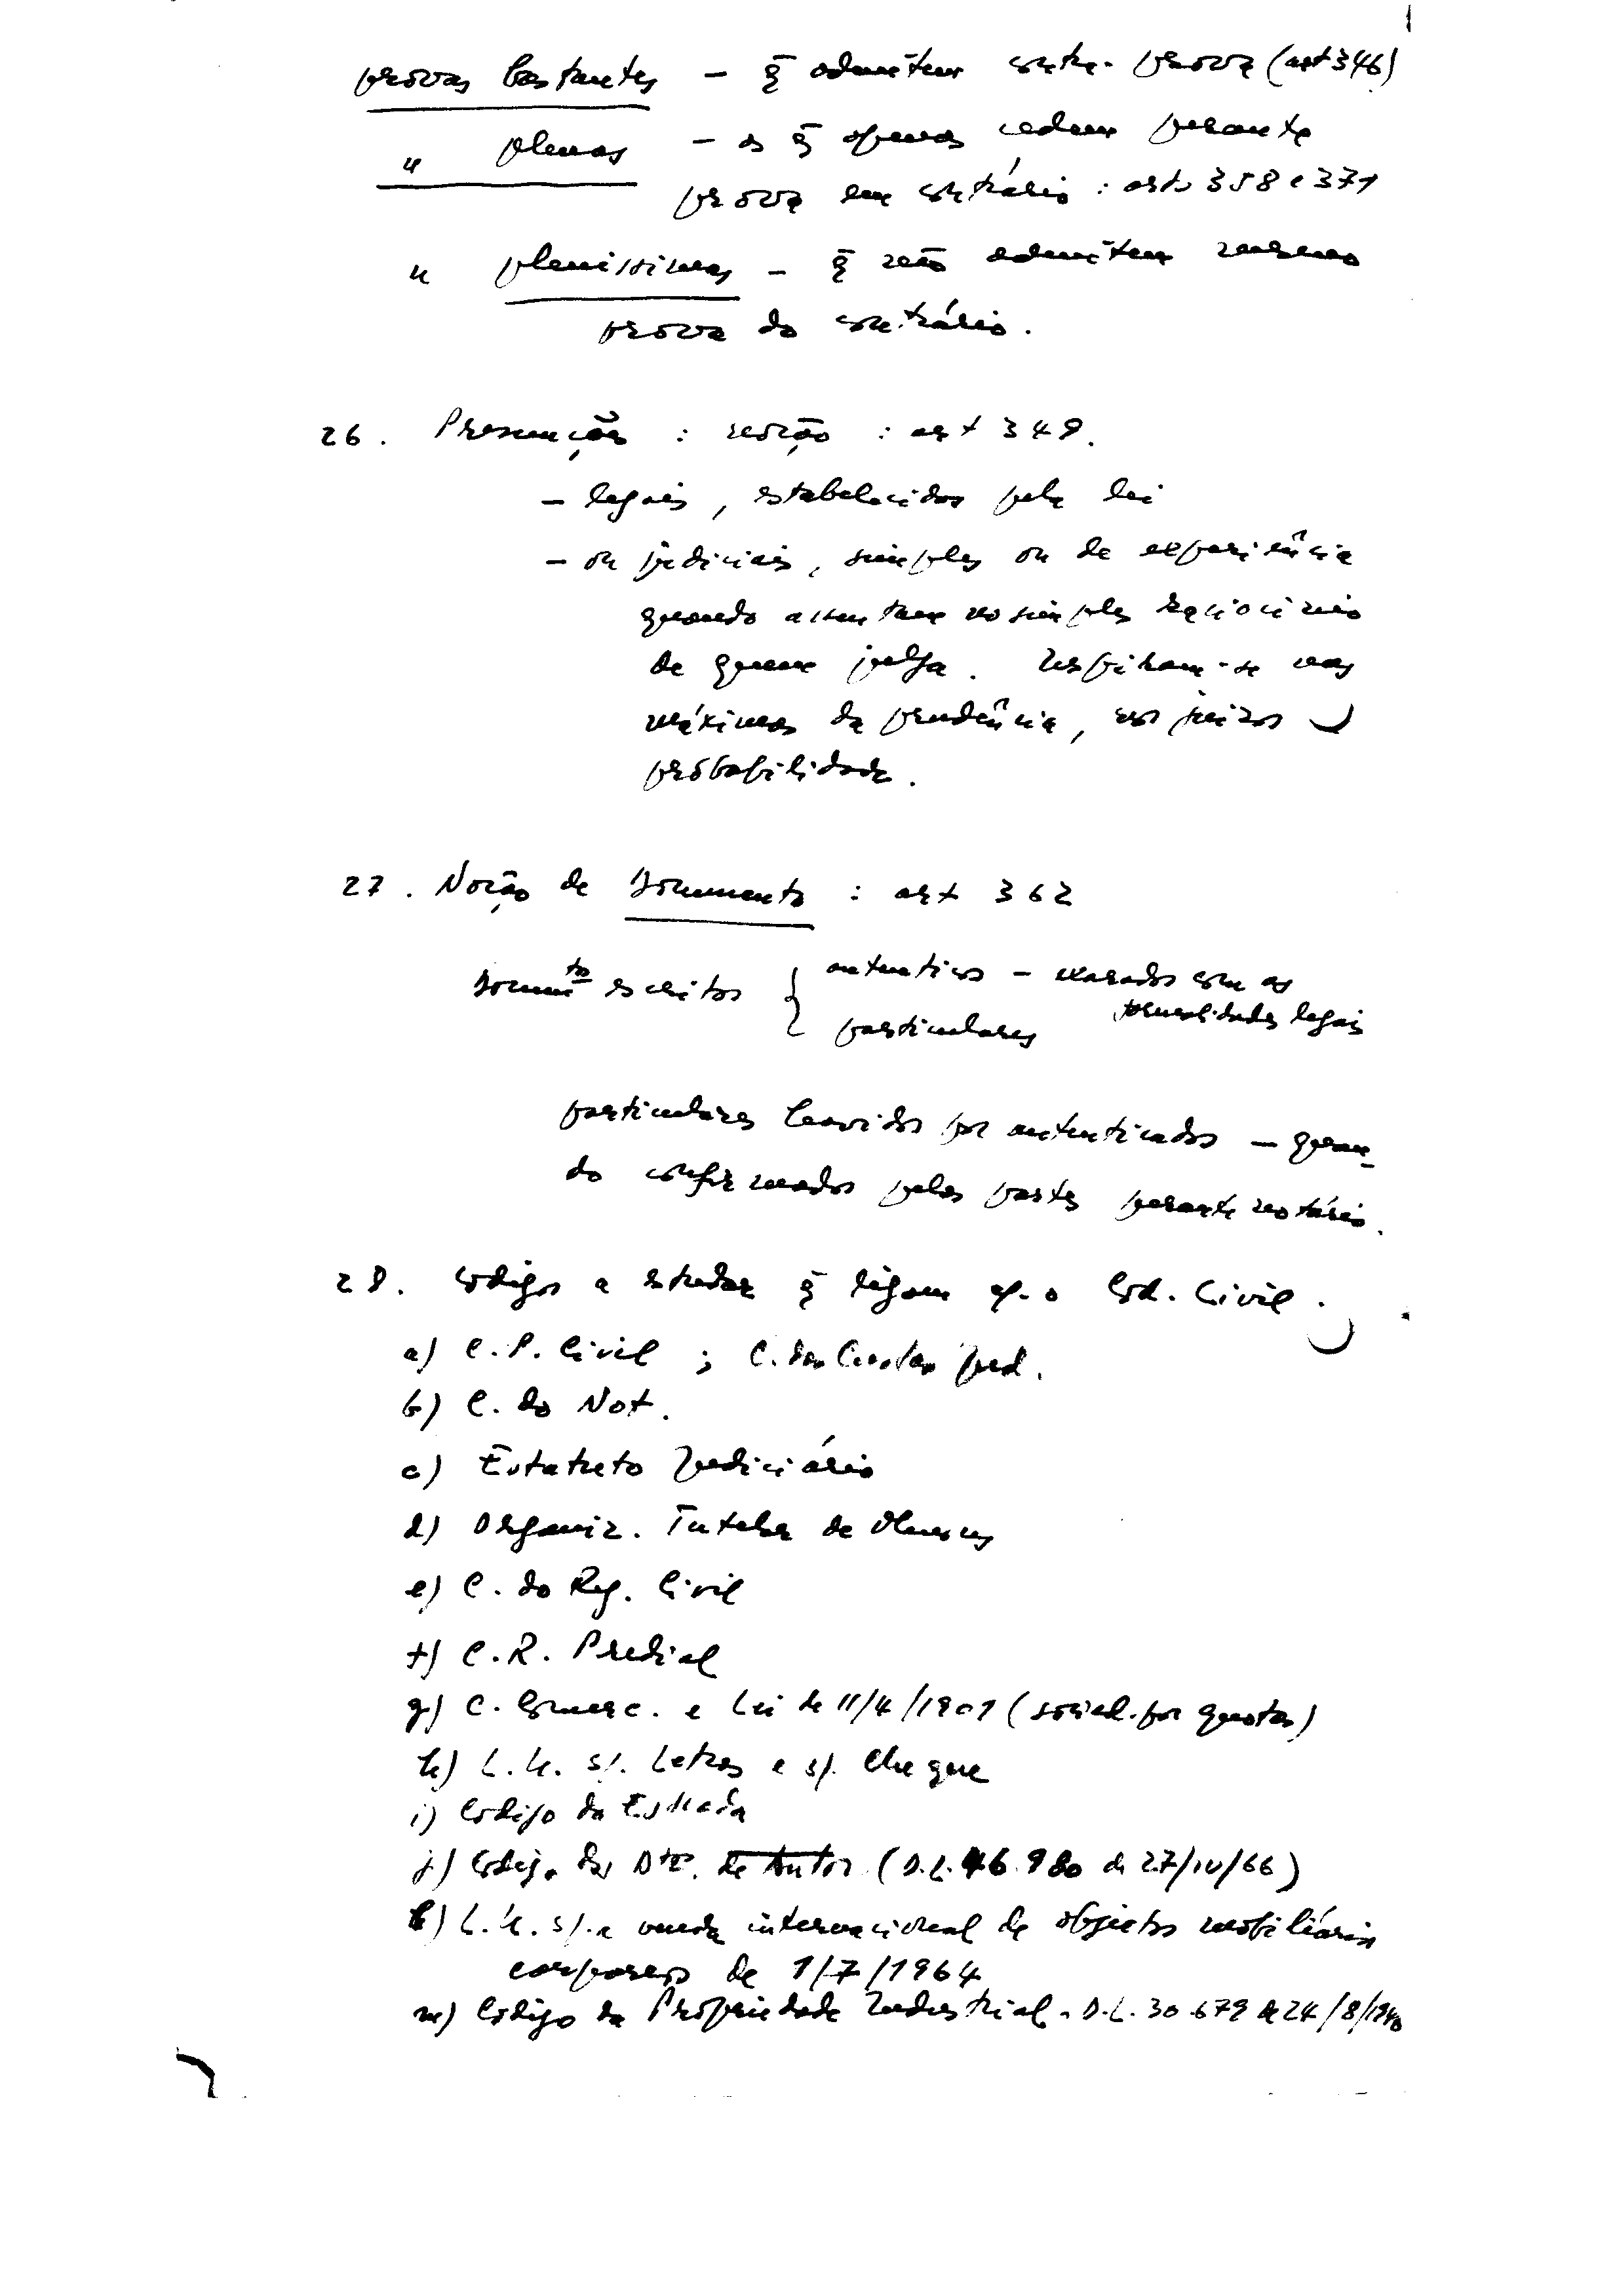 provas bastantes – q̄ admitem contra-prova (art 346)
" plenas – as q̄ apenas cedem perante
prova em contrário : arts 358 e 371
" pleníssimas – q̄ não admitem mesmo
prova do contrário.
26. Presunções : noção : art 349.
– legais, estabelecidas pela lei
– ou judiciais, simples ou de experiência
quando assentam no simples raciocínio
de quem julga. Inspiram-se nas
máximas da prudência, nos juízos
probabilidade.
27. Noção de documento : art 362
documtos escritos { autenticos – exarados com as
formalidades legais
particulares
particulares havidos por autenticados – quan-
do confirmados pelas partes perante notário.
28. Codigos a estudar q̄ ligam c/. o Cod. Civil.
a) C.P. Civil ; C. das Custas Jud.
b) C. do Not.
c) Estatuto Judiciário
d) Organiz. Tutelar de Menores
e) C. do Reg. Civil
f) C.R. Predial
g) C. Comerc. e Lei de 11/4/1901 (socied. por quotas)
h) L.U. s/. Letras e s/. Cheque
i) Codigo da Estrada
j) Codigo de Dto. de Autor (D.L. 46.980 de 27/IV/66)
k) L.U. s/. a venda internacional de objectos mobiliários
corporeos de 1/7/1964
m) Codigo da Propriedade Industrial. D.L. 30.679 de 24/8/1940